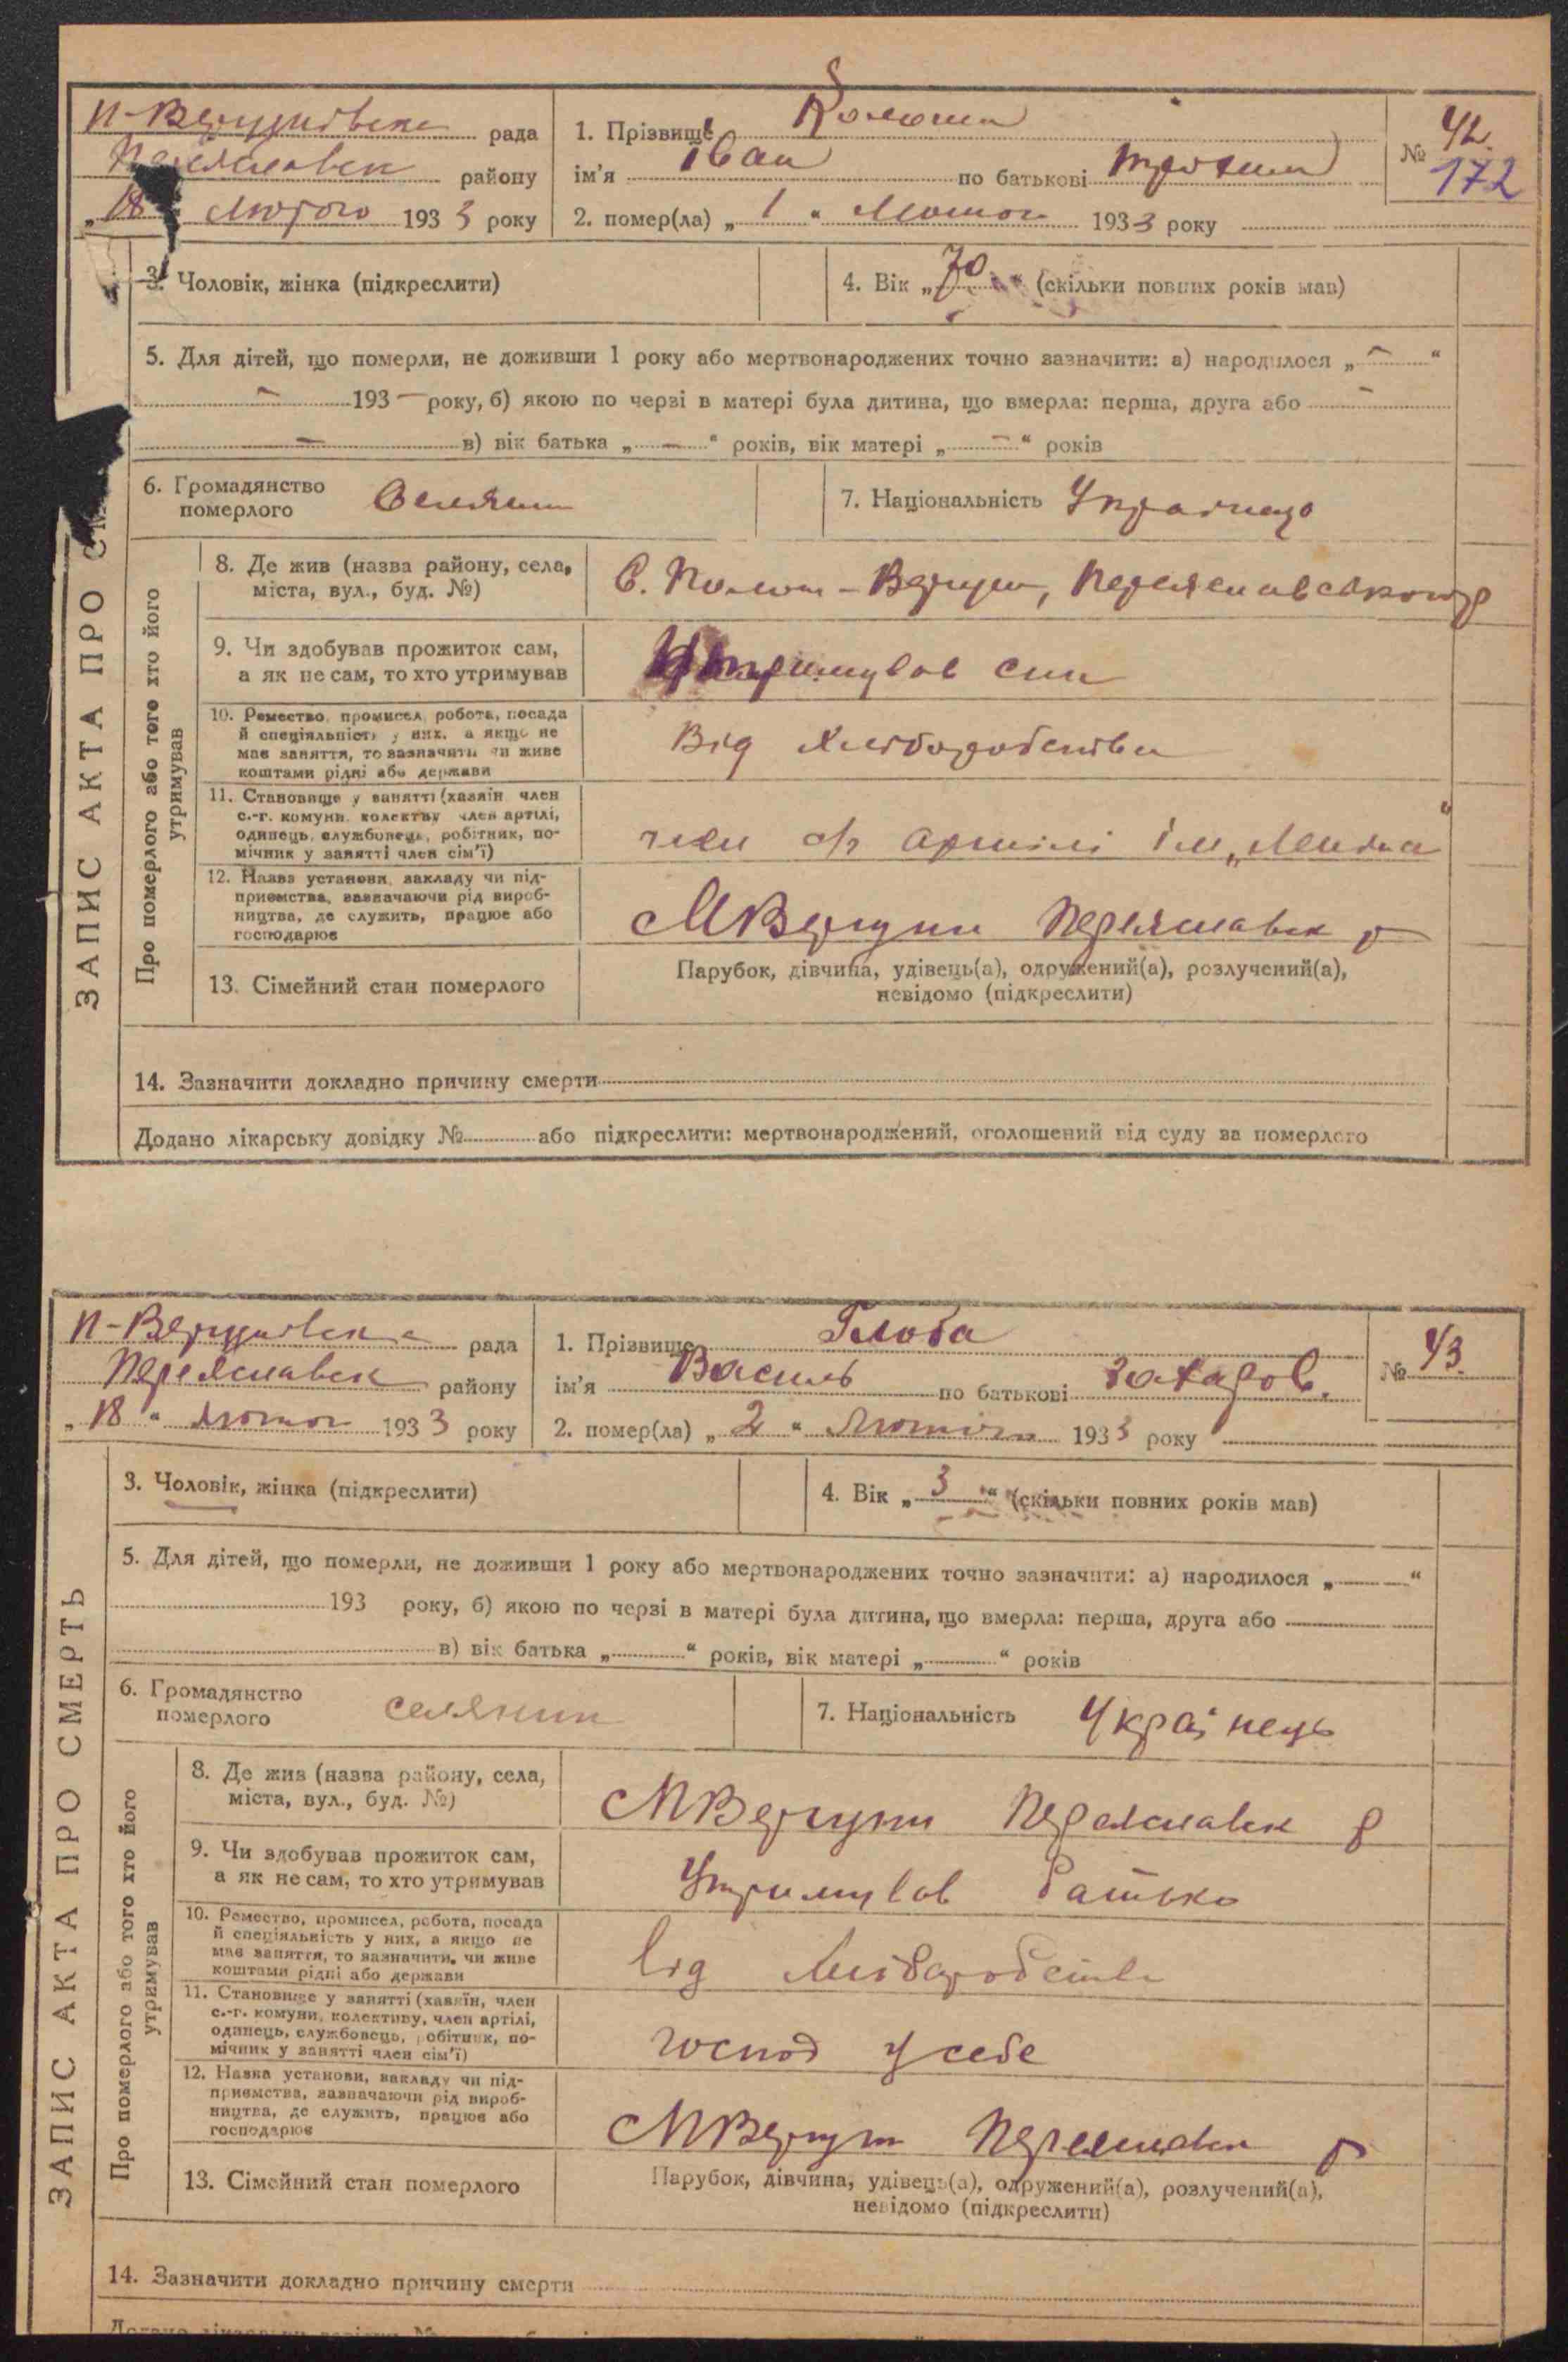 П-Вергунівська рада
Переяславськ району
„18“ Лютого 1933 року
1. Прізвище
ім'я Іван по батькові
2. помер(ла) „1“ Лютого 1933 року
№ 42.
172
3. Чоловік, жінка (підкреслити)
4. Вік „70“ (скільки повних років мав)
5. Для дітей, що померли, не доживши 1 року або мертвонароджених точно зазначити: а) народилося „ — “
— 193 — року, б) якою по черзі в матері була дитина, що вмерла: перша, друга або —
— в) вік батька „ — “ років, вік матері „ — “ років
6. Громадянство
померлого
Селянин
7. Національність
ЗАПИС АКТА ПРО СМ
Про померлого або того хто його
утримував
8. Де жив (назва району, села,
міста, вул., буд. №)
С. - Вергун, Переяславського р
9. Чи здобував прожиток сам,
а як не сам, то хто утримував
Утримував син
10. Ремество, промисел, робота, посада
й спеціяльність у них, а якщо не
має заняття, то зазначити чи живе
коштами рідні або держави
Від хліборобства
11. Становище у занятті (хазяїн, член
с.-г. комуни, колективу, член артілі,
одинець, службовець, робітник, по-
мічник у занятті член сім'ї)
член с/г артілі ім „Леніна“
12. Назва установи, закладу чи під-
приємства, зазначаючи рід вироб-
ництва, де служить, працює або
господарює
МВергуни Переяславськ р
13. Сімейний стан померлого
Парубок, дівчина, удівець(а), одружений(а), розлучений(а),
невідомо (підкреслити)
14. Зазначити докладно причину смерти
Додано лікарську довідку № або підкреслити: мертвонароджений, оголошений від суду за померлого
П-Вергунівська рада
Переяславськ району
„18“ лютого 1933 року
1. Прізвище Глоба
ім'я Василь по батькові Захаров.
2. помер(ла) „2“ Лютого 1933 року
№ 43.
3. Чоловік, жінка (підкреслити)
4. Вік „3“ (скільки повних років мав)
5. Для дітей, що померли, не доживши 1 року або мертвонароджених точно зазначити: а) народилося „ “
193 року, б) якою по черзі в матері була дитина, що вмерла: перша, друга або
в) вік батька „ “ років, вік матері „ “ років
6. Громадянство
померлого
селянин
7. Національність Українець
ЗАПИС АКТА ПРО СМЕРТЬ
Про померлого або того хто його
утримував
8. Де жив (назва району, села,
міста, вул., буд. №)
МВергуни Переяславськ р
9. Чи здобував прожиток сам,
а як не сам, то хто утримував
Утримував батько
10. Ремество, промисел, робота, посада
й спеціяльність у них, а якщо не
має заняття, то зазначити, чи живе
коштами рідні або держави
від хліборобства
11. Становище у занятті (хазяїн, член
с.-г. комуни, колективу, член артілі,
одинець, службовець, робітник, по-
мічник у занятті член сім'ї)
господ у себе
12. Назва установи, закладу чи під-
приємства, зазначаючи рід вироб-
ництва, де служить, працює або
господарює
МВергун Переяславськ р
13. Сімейний стан померлого
Парубок, дівчина, удівець(а), одружений(а), розлучений(а),
невідомо (підкреслити)
14. Зазначити докладно причину смерти